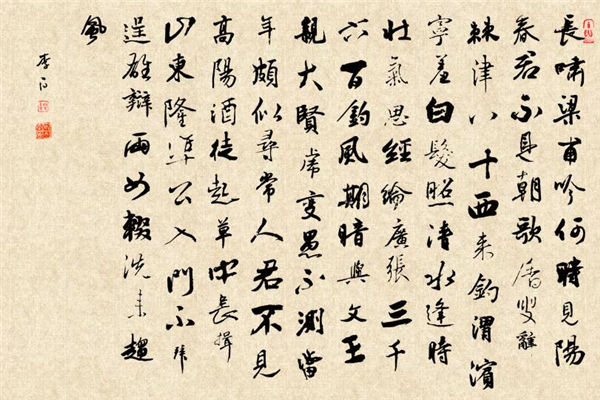 長嘯梁甫吟何時見陽
春君不見朝歌屠叟辭
棘津八十西來釣渭濱
寧羞白髮照清水逢時
壯氣思經綸廣張三千
六百釣風期暗與文王
親大賢虎變愚不測當
年頗似尋常人君不見
高陽酒徒起草中長揖
山東隆準公入門不拜
逞雄辯兩女輟洗來趨
風
李白